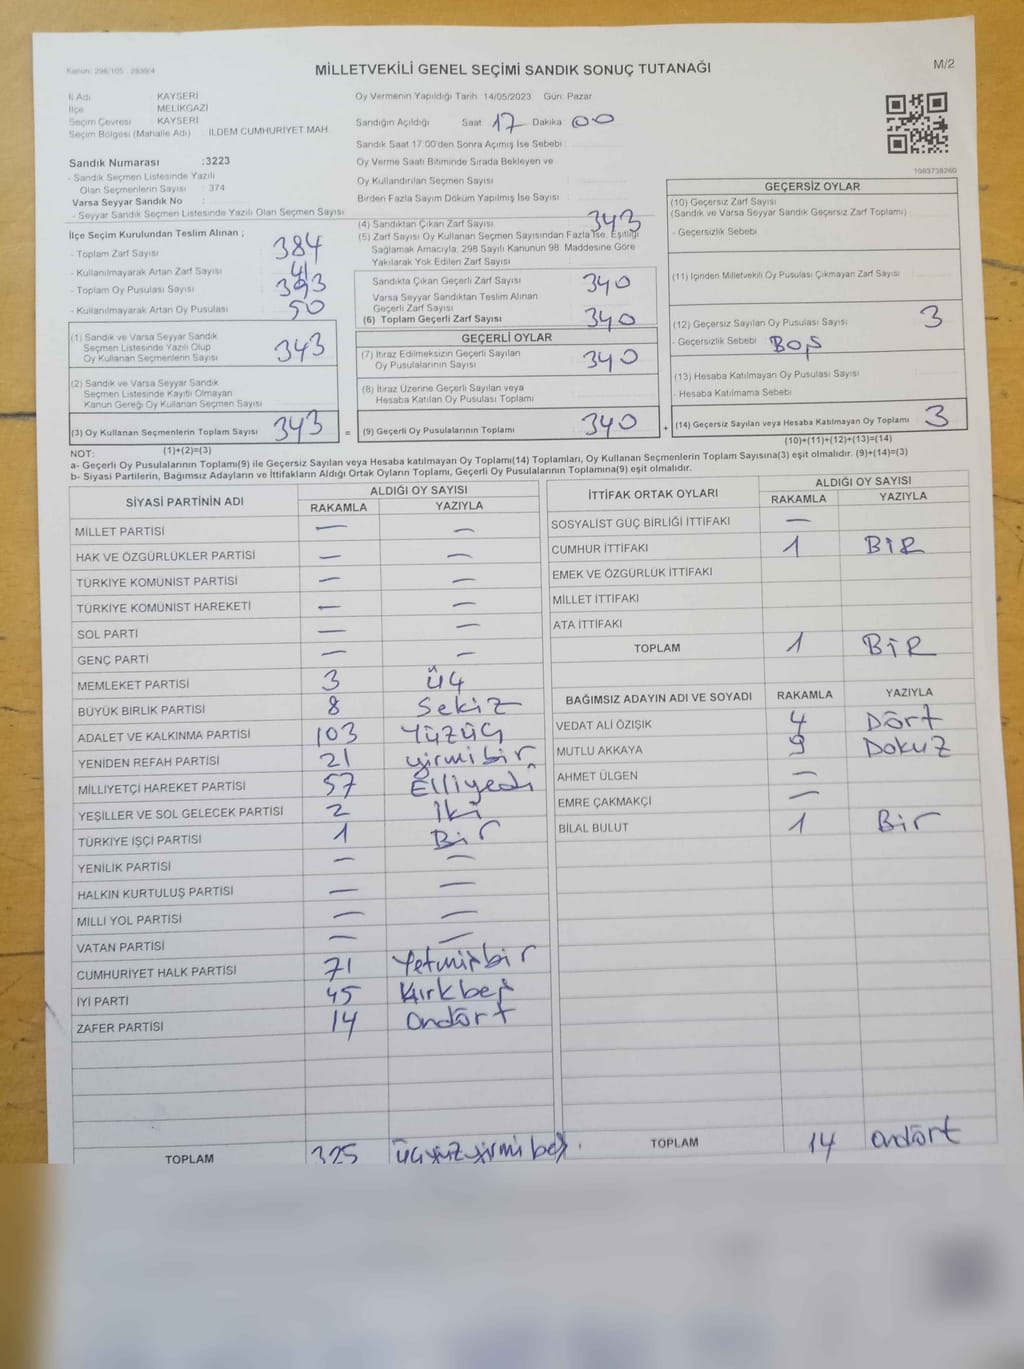 Kanun: 298/105 , 2839/4
MİLLETVEKİLİ GENEL SEÇİMİ SANDIK SONUÇ TUTANAĞI
M/2
İl Adı KAYSERİ
İlçe MELİKGAZİ
Seçim Çevresi KAYSERİ
Seçim Bölgesi (Mahalle Adı) : İLDEM CUMHURİYET MAH.
Oy Vermenin Yapıldığı Tarih 14/05/2023 Gün: Pazar
Sandığın Açıldığı Saat 17 Dakika 00
Sandık Saat 17:00'den Sonra Açımış İse Sebebi
Oy Verme Saati Bitiminde Sırada Bekleyen ve
Oy Kullandırılan Seçmen Sayısı
Birden Fazla Sayım Döküm Yapılmış İse Sayısı
Sandık Numarası :3223
- Sandık Seçmen Listesinde Yazılı
Olan Seçmenlerin Sayısı : 374
Varsa Seyyar Sandık No :
- Seyyar Sandık Seçmen Listesinde Yazılı Olan Seçmen Sayısı
İlçe Seçim Kurulundan Teslim Alınan ;
- Toplam Zarf Sayısı 384
- Kullanılmayarak Artan Zarf Sayısı 41
- Toplam Oy Pusulası Sayısı 393
- Kullanılmayarak Artan Oy Pusulası 50
(1) Sandık ve Varsa Seyyar Sandık
Seçmen Listesinde Yazılı Olup
Oy Kullanan Seçmenlerin Sayısı 343
(2) Sandık ve Varsa Seyyar Sandık
Seçmen Listesinde Kayıtlı Olmayan
Kanun Gereği Oy Kullanan Seçmen Sayısı
(3) Oy Kullanan Seçmenlerin Toplam Sayısı 343 =
(1)+(2)=(3)
(4) Sandıktan Çıkan Zarf Sayısı 343
(5) Zarf Sayısı Oy Kullanan Seçmen Sayısından Fazla İse, Eşitliği
Sağlamak Amacıyla, 298 Sayılı Kanunun 98. Maddesine Göre
Yakılarak Yok Edilen Zarf Sayısı
Sandıkta Çıkan Geçerli Zarf Sayısı 340
Varsa Seyyar Sandıktan Teslim Alınan
Geçerli Zarf Sayısı
(6) Toplam Geçerli Zarf Sayısı 340
GEÇERLİ OYLAR
(7) İtiraz Edilmeksizin Geçerli Sayılan
Oy Pusulalarının Sayısı 340
(8) İtiraz Üzerine Geçerli Sayılan veya
Hesaba Katılan Oy Pusulası Toplamı
(9) Geçerli Oy Pusulalarının Toplamı 340 +
1083738260
GEÇERSİZ OYLAR
(10) Geçersiz Zarf Sayısı
(Sandık ve Varsa Seyyar Sandık Geçersiz Zarf Toplamı)
- Geçersizlik Sebebi
(11) İçinden Milletvekili Oy Pusulası Çıkmayan Zarf Sayısı
(12) Geçersiz Sayılan Oy Pusulası Sayısı 3
- Geçersizlik Sebebi Boş
(13) Hesaba Katılmayan Oy Pusulası Sayısı
- Hesaba Katılmama Sebebi
(14) Geçersiz Sayılan veya Hesaba Katılmayan Oy Toplamı 3
(10)+(11)+(12)+(13)=(14)
NOT:
a- Geçerli Oy Pusulalarının Toplamı(9) ile Geçersiz Sayılan veya Hesaba katılmayan Oy Toplamı(14) Toplamları, Oy Kullanan Seçmenlerin Toplam Sayısına(3) eşit olmalıdır. (9)+(14)=(3)
b- Siyasi Partilerin, Bağımsız Adayların ve İttifakların Aldığı Ortak Oyların Toplamı, Geçerli Oy Pusulalarının Toplamına(9) eşit olmalıdır.
SİYASİ PARTİNİN ADI
ALDIĞI OY SAYISI
RAKAMLA YAZIYLA
MİLLET PARTİSİ — —
HAK VE ÖZGÜRLÜKLER PARTİSİ — —
TÜRKİYE KOMÜNİST PARTİSİ — —
TÜRKİYE KOMÜNİST HAREKETİ — —
SOL PARTİ — —
GENÇ PARTİ — —
MEMLEKET PARTİSİ 3 üç
BÜYÜK BİRLİK PARTİSİ 8 Sekiz
ADALET VE KALKINMA PARTİSİ 103 Yüzüç
YENİDEN REFAH PARTİSİ 21 yirmibir
MİLLİYETÇİ HAREKET PARTİSİ 57 Elliyedi
YEŞİLLER VE SOL GELECEK PARTİSİ 2 İki
TÜRKİYE İŞÇİ PARTİSİ 1 Bir
YENİLİK PARTİSİ — —
HALKIN KURTULUŞ PARTİSİ — —
MİLLİ YOL PARTİSİ — —
VATAN PARTİSİ — —
CUMHURİYET HALK PARTİSİ 71 Yetmişbir
İYİ PARTİ 45 Kırkbeş
ZAFER PARTİSİ 14 Ondört
TOPLAM 325 üçyüzyirmibeş.
İTTİFAK ORTAK OYLARI
ALDIĞI OY SAYISI
RAKAMLA YAZIYLA
SOSYALİST GÜÇ BİRLİĞİ İTTİFAKI —
CUMHUR İTTİFAKI 1 BİR
EMEK VE ÖZGÜRLÜK İTTİFAKI
MİLLET İTTİFAKI
ATA İTTİFAKI
TOPLAM 1 BİR
BAĞIMSIZ ADAYIN ADI VE SOYADI RAKAMLA YAZIYLA
VEDAT ALİ ÖZIŞIK 4 Dört
MUTLU AKKAYA 9 Dokuz
AHMET ÜLGEN —
EMRE ÇAKMAKÇİ —
BİLAL BULUT 1 Bir
TOPLAM 14 ondört